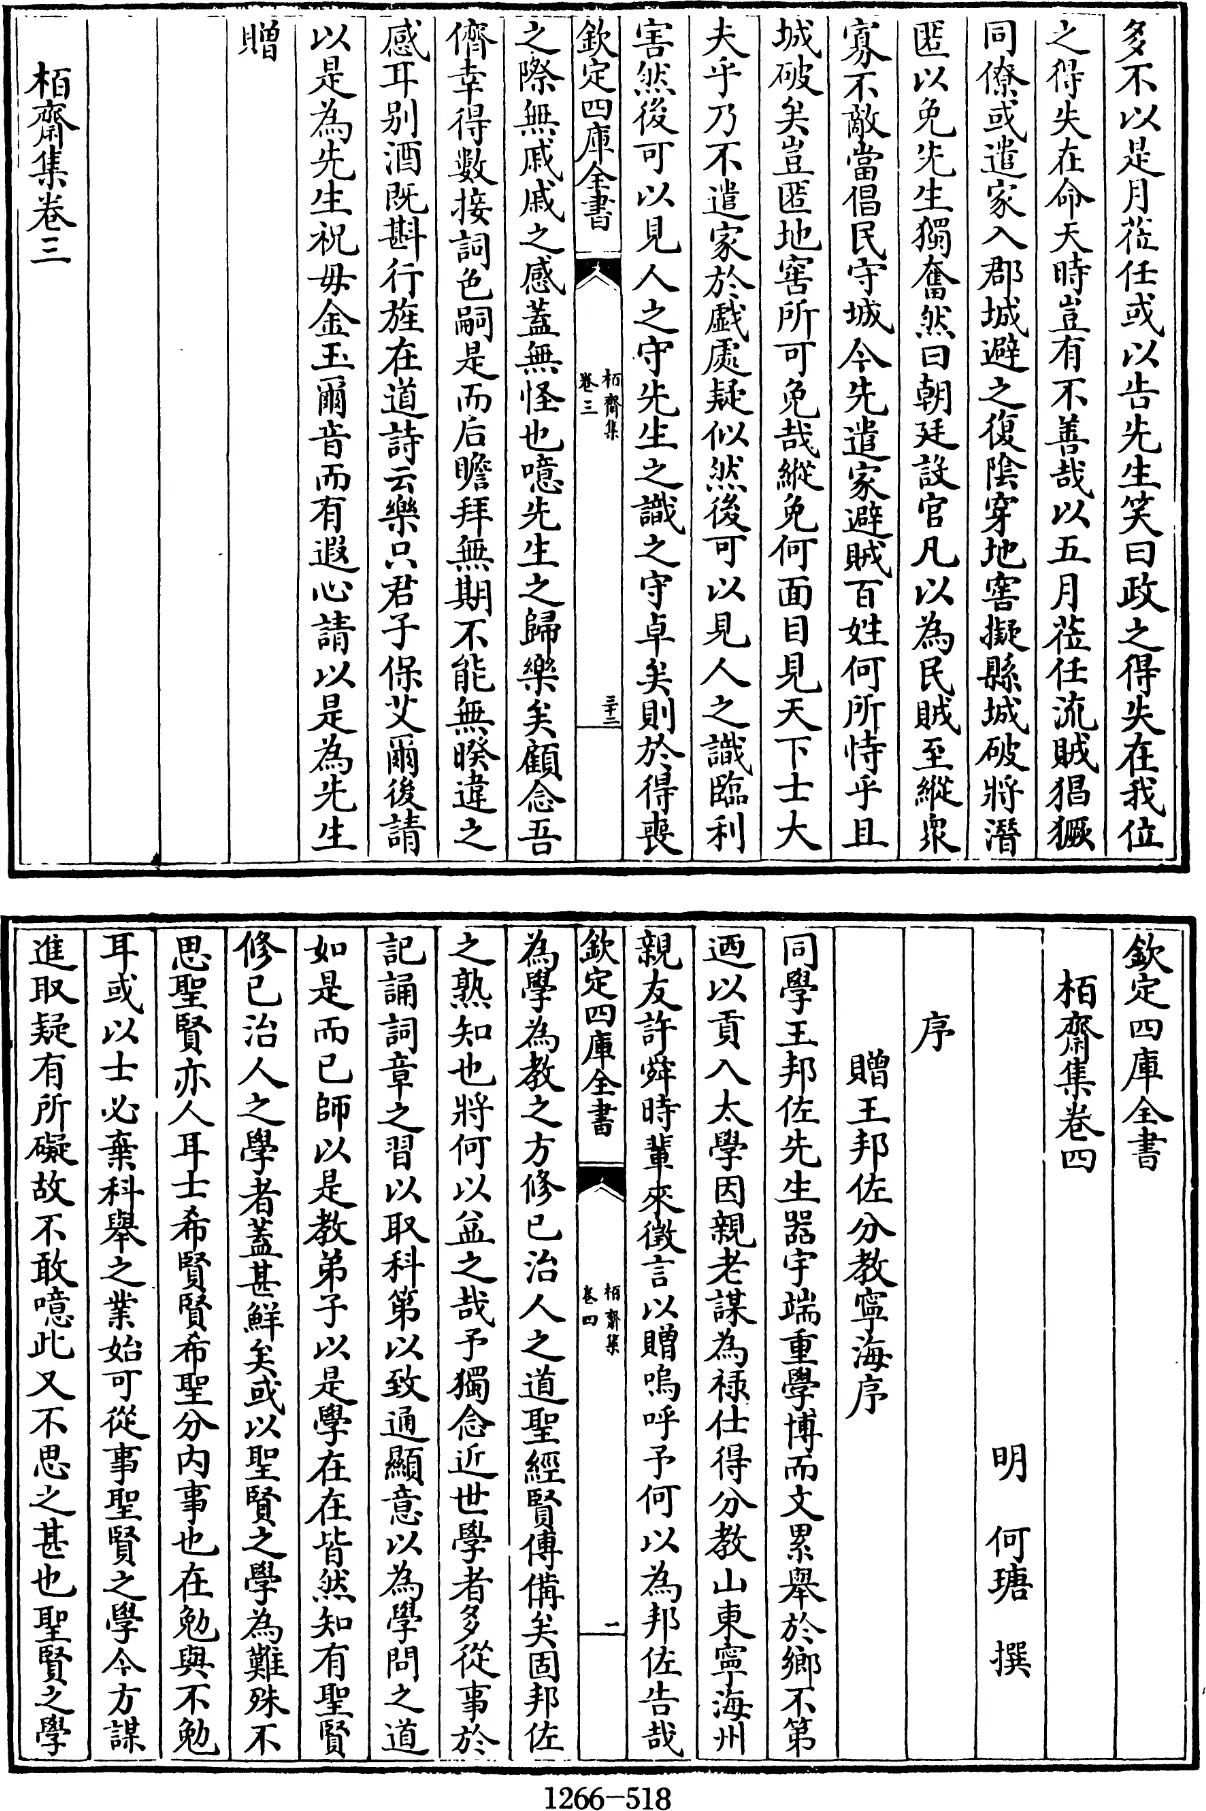 多不以是月莅任或以告先生笑曰政之得失在我位
之得失在命天時豈有不善哉以五月莅任流賊猖獗
同僚或遣家入郡城避之復陰穿地窖擬縣城破將潛
匿以免先生獨奮然曰朝廷設官凡以為民賊至縱衆
寡不敵當倡民守城今先遣家避賊百姓何所恃乎且
城破矣豈匿地窖所可免哉縱免何面目見天下士大
夫乎乃不遣家於戲處疑似然後可以見人之識臨利
害然後可以見人之守先生之識之守卓矣則於得喪
欽定四庫全書
栢齋集
卷三
三十三
之際無戚戚之感蓋無怪也噫先生之歸樂矣顧念吾
儕幸得數接詞色嗣是而后瞻拜無期不能無暌違之
感耳别酒既斟行旌在道詩云樂只君子保艾爾後請
以是為先生祝毋金玉爾音而有遐心請以是為先生
贈
栢齋集卷三
欽定四庫全書
栢齋集卷四
明 何瑭 撰
序
贈王邦佐分教寧海序
同學王邦佐先生器宇端重學博而文累舉於鄉不第
迺以貢入太學因親老謀為禄仕得分教山東寧海州
親友許舜時輩來徵言以贈嗚呼予何以為邦佐告哉
欽定四庫全書
栢齋集
卷四
一
為學為教之方修己治人之道聖經賢傳備矣固邦佐
之熟知也將何以益之哉予獨念近世學者多從事於
記誦詞章之習以取科第以致通顯意以為學問之道
如是而已師以是教弟子以是學在在皆然知有聖賢
修己治人之學者蓋甚鮮矣或以聖賢之學為難殊不
思聖賢亦人耳士希賢賢希聖分内事也在勉與不勉
耳或以士必棄科舉之業始可從事聖賢之學今方謀
進取疑有所礙故不敢噫此又不思之甚也聖賢之學
1266-518